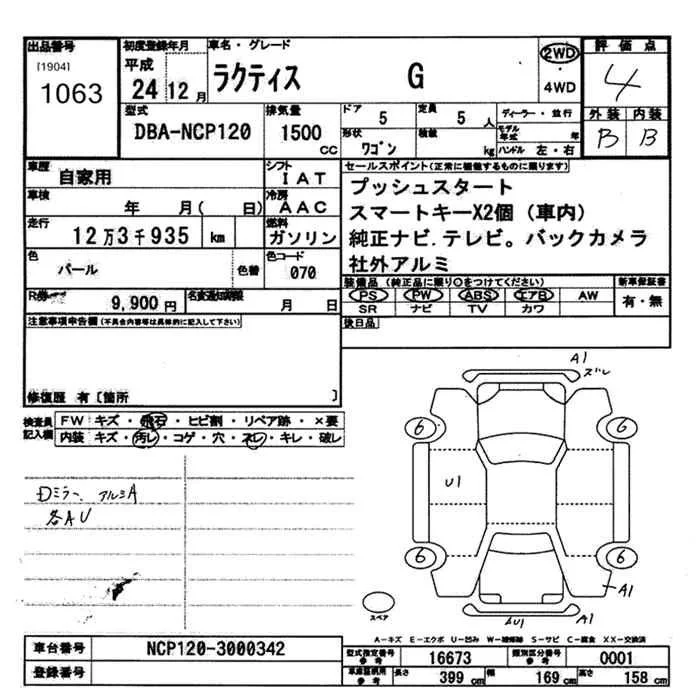 出品番号 初度登録年月 車名・グレード 2WD 評価点
[1904] 平成 ラクティス G 4
1063 24 12月 4WD
型式 排気量 ドア 5 定員 5人 ディーラー・並行 外装 内装
DBA-NCP120 1500cc 形状 ワゴン 積載 kg モデル年式 年 ハンドル 左・右 B B
車歴 自家用 シフト IAT セールスポイント(正常に稼働するものに限ります)
車検 年 月( 日) 冷房 AAC プッシュスタート
走行 12万3千935 km 燃料 ガソリン スマートキーX2個(車内)
色 パール 色替 色コード 070 純正ナビ.テレビ。バックカメラ
社外アルミ
R券 9,900円 名変通知期限 月 日
装備品(純正品に限り○をつけてください) 新車保証書
PS PW ABS エアB AW 有・無
SR ナビ TV カワ
注意事項申告欄(不具合内容等は具体的に記入して下さい) 後日品
修復歴 有〔箇所 〕
検査員記入欄 FW キズ・飛石・ヒビ割・リペア跡・×要
内装 キズ・汚レ・コゲ・穴・スレ・キレ・破レ
A1
ズレ
6 6
U1
Dミラー、アルミA
各AU
6 6
A1
スペア
AU1 A1
A-キズ E-エクボ U-凹み W-補修跡 S-サビ C-腐食 XX-交換済
車台番号 NCP120-3000342
型式指定番号 参考 16673 類別区分番号 参考 0001
登録番号
車庫証明用 参考 長さ 399cm 幅 169cm 高さ 158cm